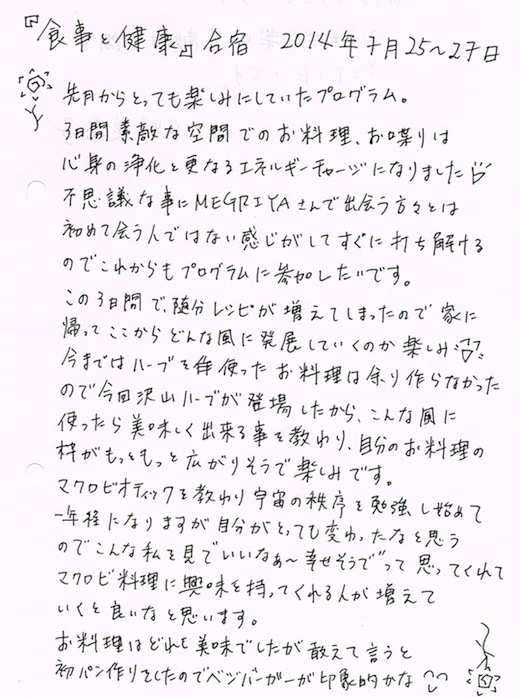 『食事と健康』合宿 2014年7月25~27日
先月からとっても楽しみにしていたプログラム。
3日間素敵な空間でのお料理、お喋りは
心身の浄化と更なるエネルギーチャージになりました
不思議な事にMEGRIYAさんで出会う方々とは
初めて会う人ではない感じがしてすぐに打ち解ける
のでこれからもプログラムに参加したいです。
この3日間で、随分レシピが増えてしまったので家に
帰ってここからどんな風に発展していくのか楽しみ
今まではハーブを使ったお料理は余り作らなかった
ので今回沢山ハーブが登場したから、こんな風に
使ったら美味しく出来る事を教わり、自分のお料理の
枠がもっともっと広がりそうで楽しみです。
マクロビオティックを教わり宇宙の秩序を勉強し始めて
一年程になりますが自分がとっても変わったなと思う
のでこんな私を見でいいなぁ〜幸せそうで"って思ってくれて
マクロビ料理に興味を持ってくれる人が増えて
いくと良いなと思います。
お料理はどれも美味でしたが敢えて言うと
初パン作りをしたのでベジバーガーが印象的かな